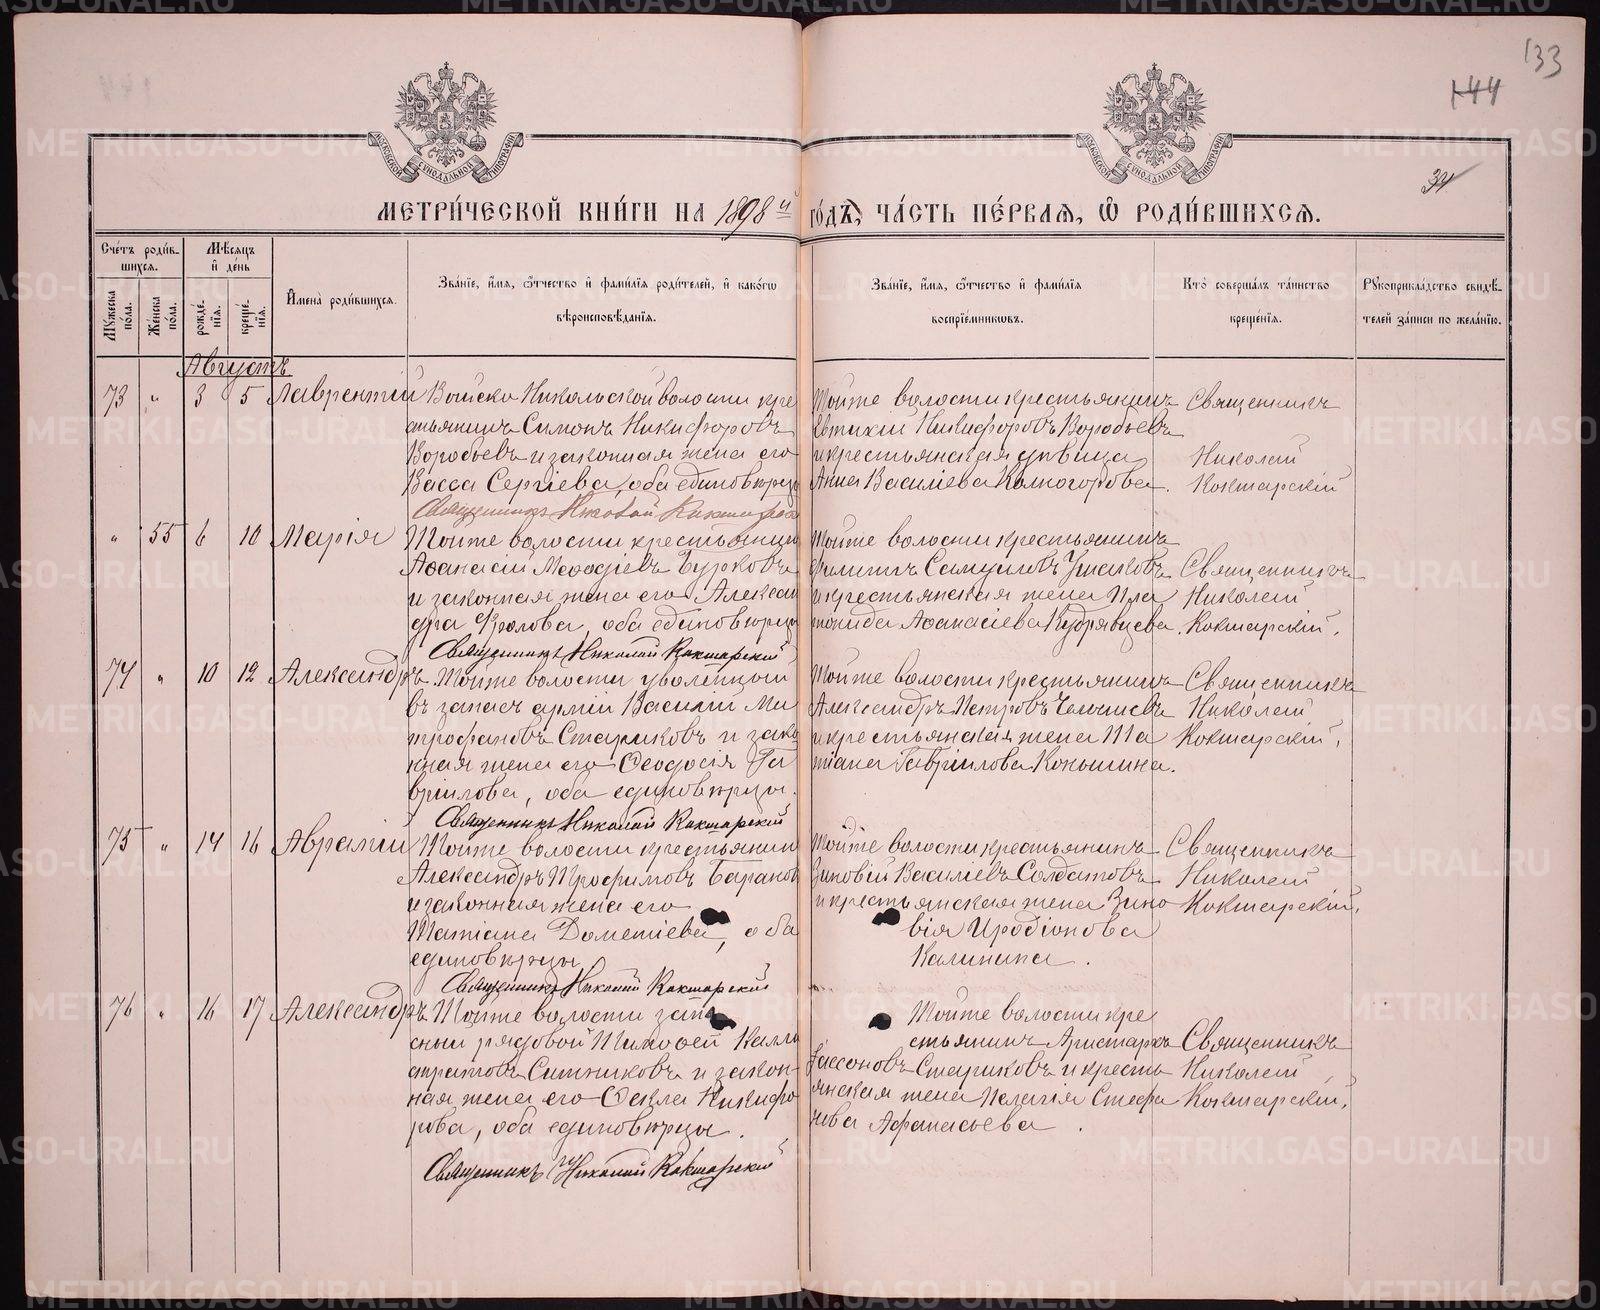 133
144
34
МОСКОВСКОЙ СѴНОДАЛЬНОЙ ТИПОГРАФІИ
МОСКОВСКОЙ СѴНОДАЛЬНОЙ ТИПОГРАФІИ
МЕТРИ́ЧЕСКОЙ КНИ́ГИ НА 1898й ГО́ДЪ, ЧА́СТЬ ПЕ́РВАѦ, Ѽ РОДИ́ВШИХСѦ.
Сче́тъ роди́в-
шихсѧ.
Мꙋ́жеска по́ла.
Же́нска по́ла.
Мѣ́сѧцъ
и҆ де́нь
рожде́-
нїѧ.
креще́-
нїѧ.
И҆мена̀ роди́вшихсѧ.
Зва́нїе, и҆́мѧ, ѻ҆́тчество и҆ фами́лїѧ роди́телей, и҆ како́гѡ
вѣроисповѣ́данїѧ.
Зва́нїе, и҆́мѧ, ѻ҆́тчество и҆ фами́лїѧ
воспрїе́мникѡвъ.
Кто̀ соверша́лъ та́инство
креще́нїѧ.
Рꙋкоприкла́дство свидѣ́-
телей за́писи по жела́нїю.
Августъ
73 " 3 5 Лаврентій
Войско Никольской волости кре
стьянинъ Симонъ Никифоровъ
Воробьевъ и законная жена его
Васса Сергіева, оба единовѣрцы
Священникъ Николай Кокшарскій
Тойже волости крестьянинъ
Евтихій Никифоровъ Воробьевъ
и крестьянская дѣвица
Анна Василіева Колногорова.
Священникъ
Николай
Кокшарскій
" 55 6 10 Марія
Тойже волости крестьянинъ
Аѳанасій Меѳодіевъ Бурковъ
и законная жена его Алексан
дра Фролова, оба единовѣрцы
Священникъ Николай Кокшарскій
Тойже волости крестьянинъ
Филиппъ Самуиловъ Ушаковъ
и крестьянская жена Ила
тонида Аѳанасіева Кудрявцева.
Священникъ
Николай
Кокшарскій.
74 " 10 12 Александръ
Тойже волости уволенный
въ запасъ арміи Василій Ми
трофановъ Стариковъ и зако
нная жена его Ѳеодосія Га
вріилова, оба единовѣрцы.
Священникъ Николай Кокшарскій
Тойже волости крестьянинъ
Александръ Петровъ
и крестьянская жена Та
тіана Гавріилова Коньшина.
Священникъ
Николай
Кокшарскій.
75 " 14 16 Аврамій
Тойже волости крестьянинъ
Александръ Трофимовъ Барановъ
и законная жена его
Татіана Дометіева, оба
единовѣрцы
Священникъ Николай Кокшарскій
Тойже волости крестьянинъ
Зиновій Василіевъ Солдатовъ
и крестьянская жена Зино
вія Иродіонова
Калинина.
Священникъ
Николай
Кокшарскій.
76 " 16 17 Александръ
Тойже волости запа
сный рядовой Тимоѳей Калли
стратовъ Ситниковъ и закон-
ная жена его Ѳекла Никифо
рова, оба единовѣрцы.
Священникъ Николай Кокшарскій
Тойже волости кре
стьянинъ Аристархъ
Іассоновъ Стариковъ и кресть
янская жена Пелагія Стефа
нова Афанасьева.
Священникъ
Николай
Кокшарскій.
METRIKI.GASO-URAL.RU